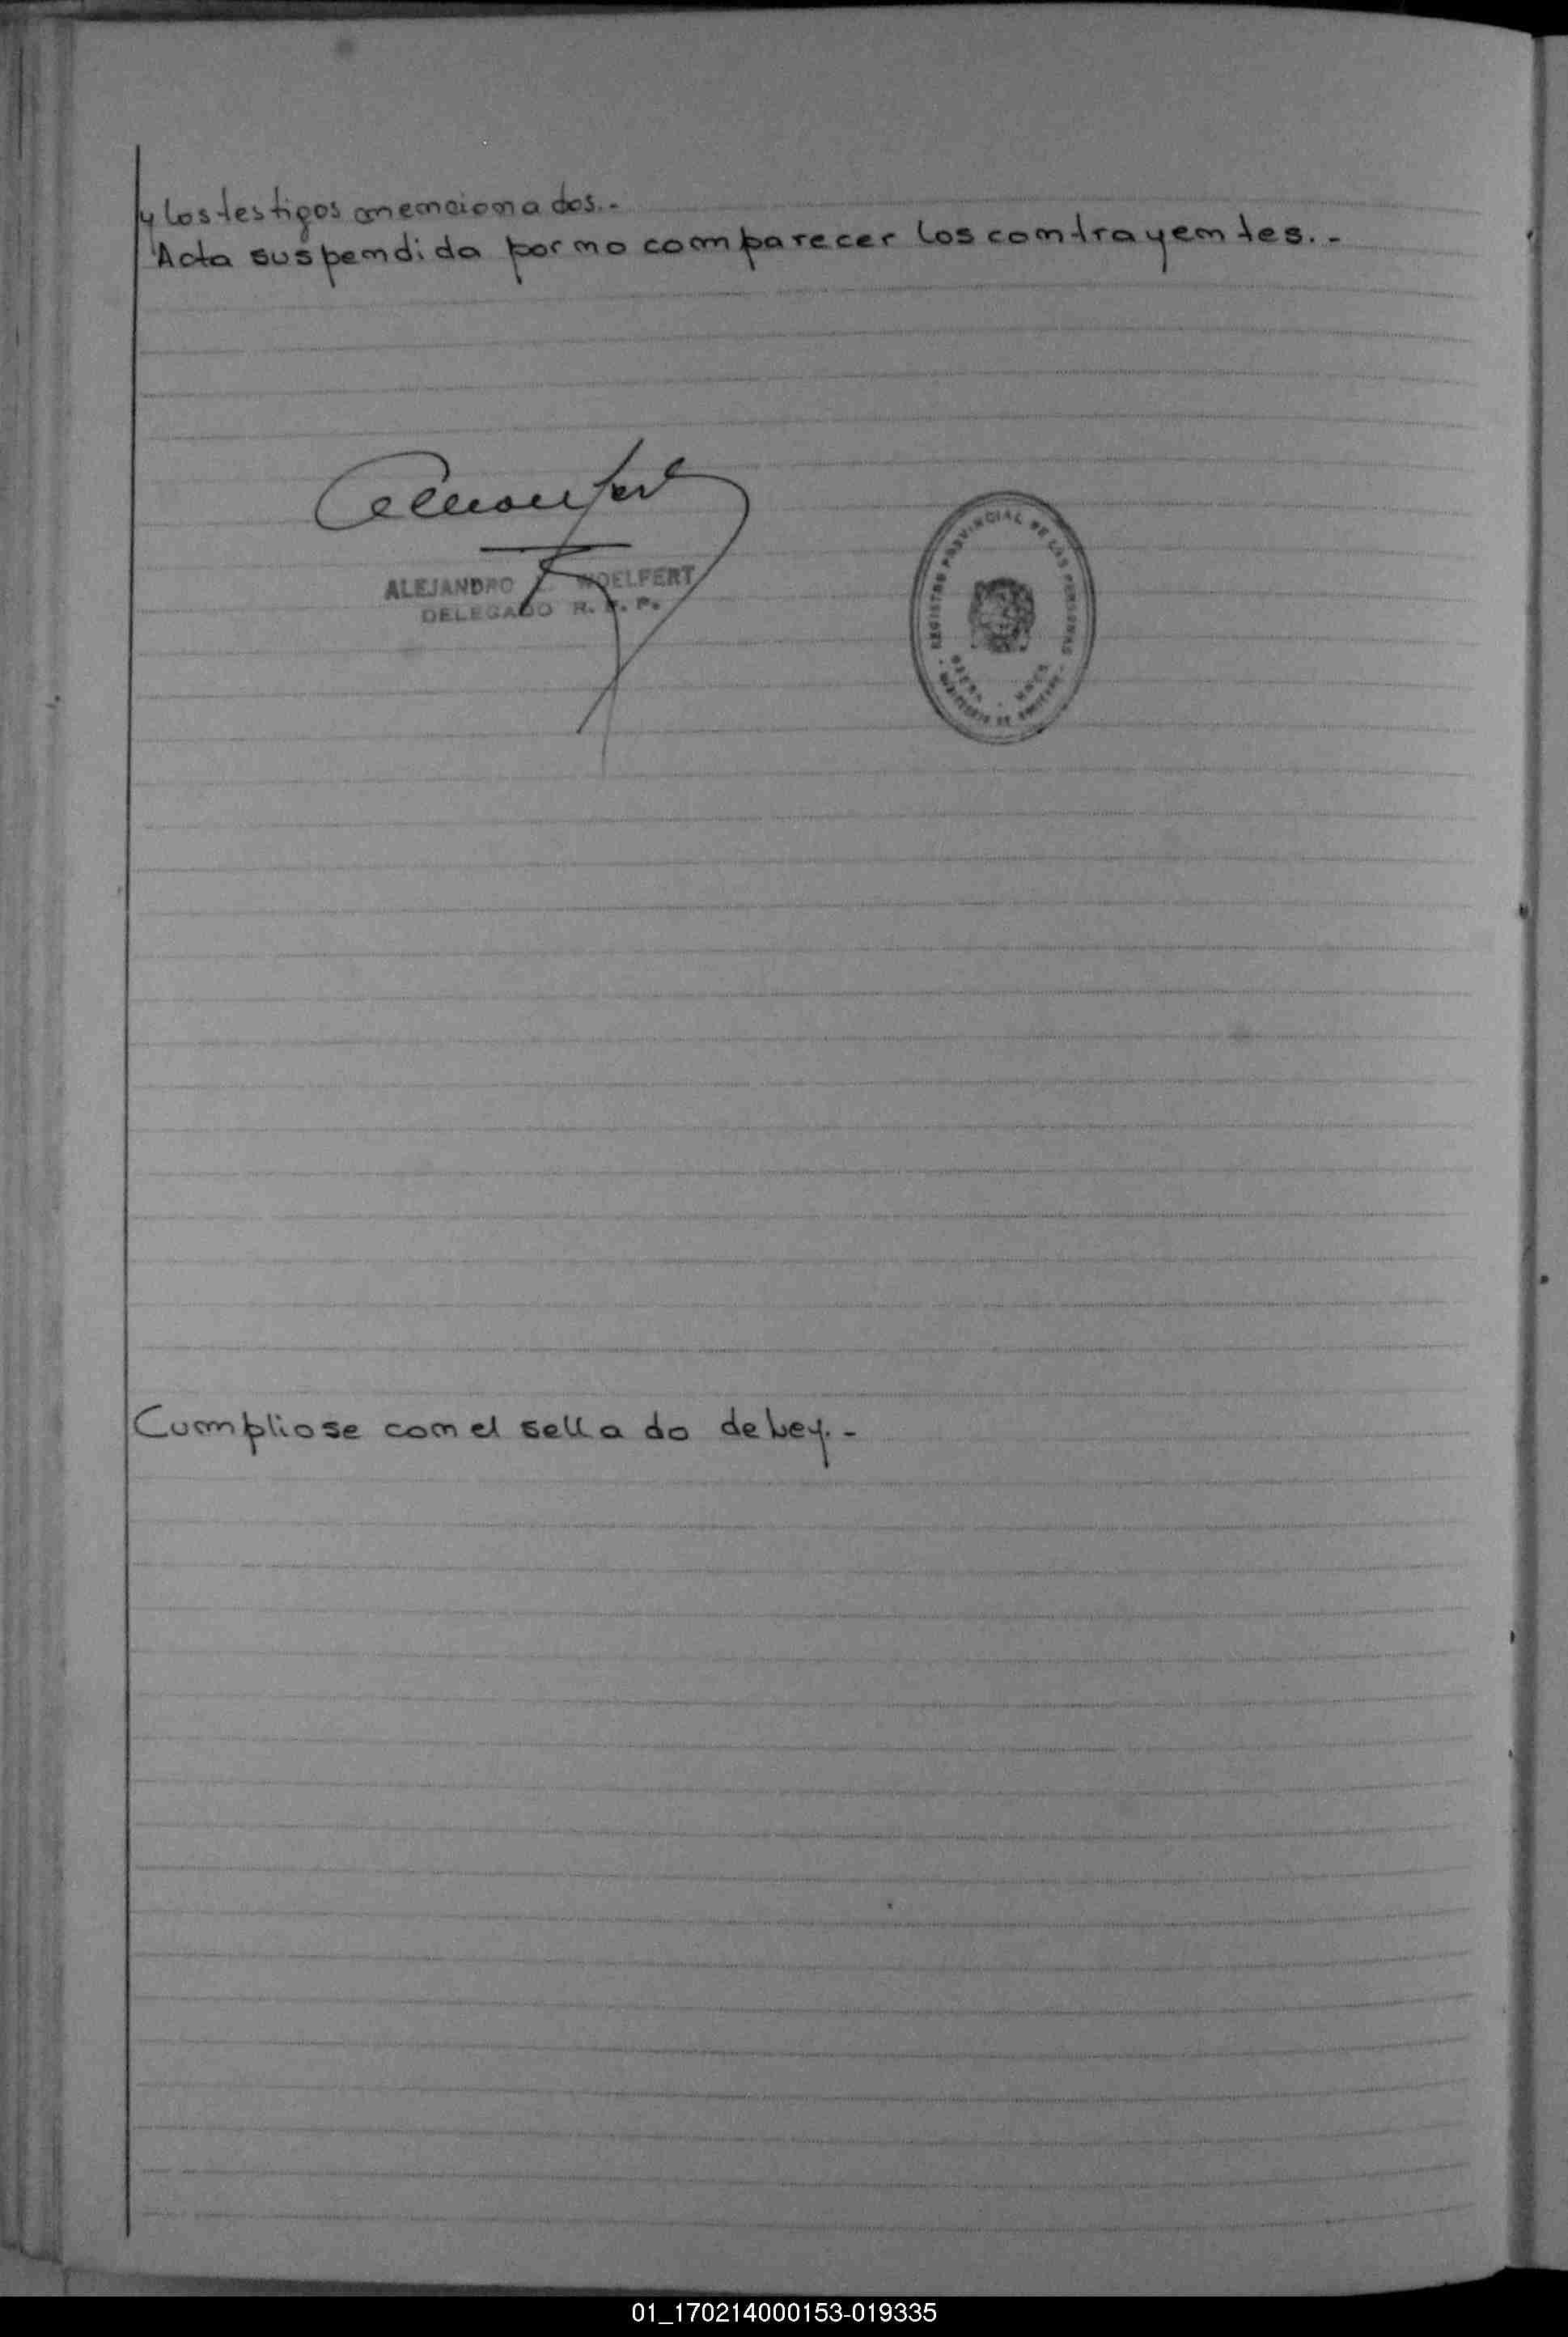 y los testigos mencionados.-
Acta suspendida por no comparecer los contrayentes.-
ALEJANDRO WOELFERT
DELEGADO R. P. P.
REGISTRO PROVINCIAL DE LAS PERSONAS
Cumpliose con el sellado de Ley.-
01_170214000153-019335